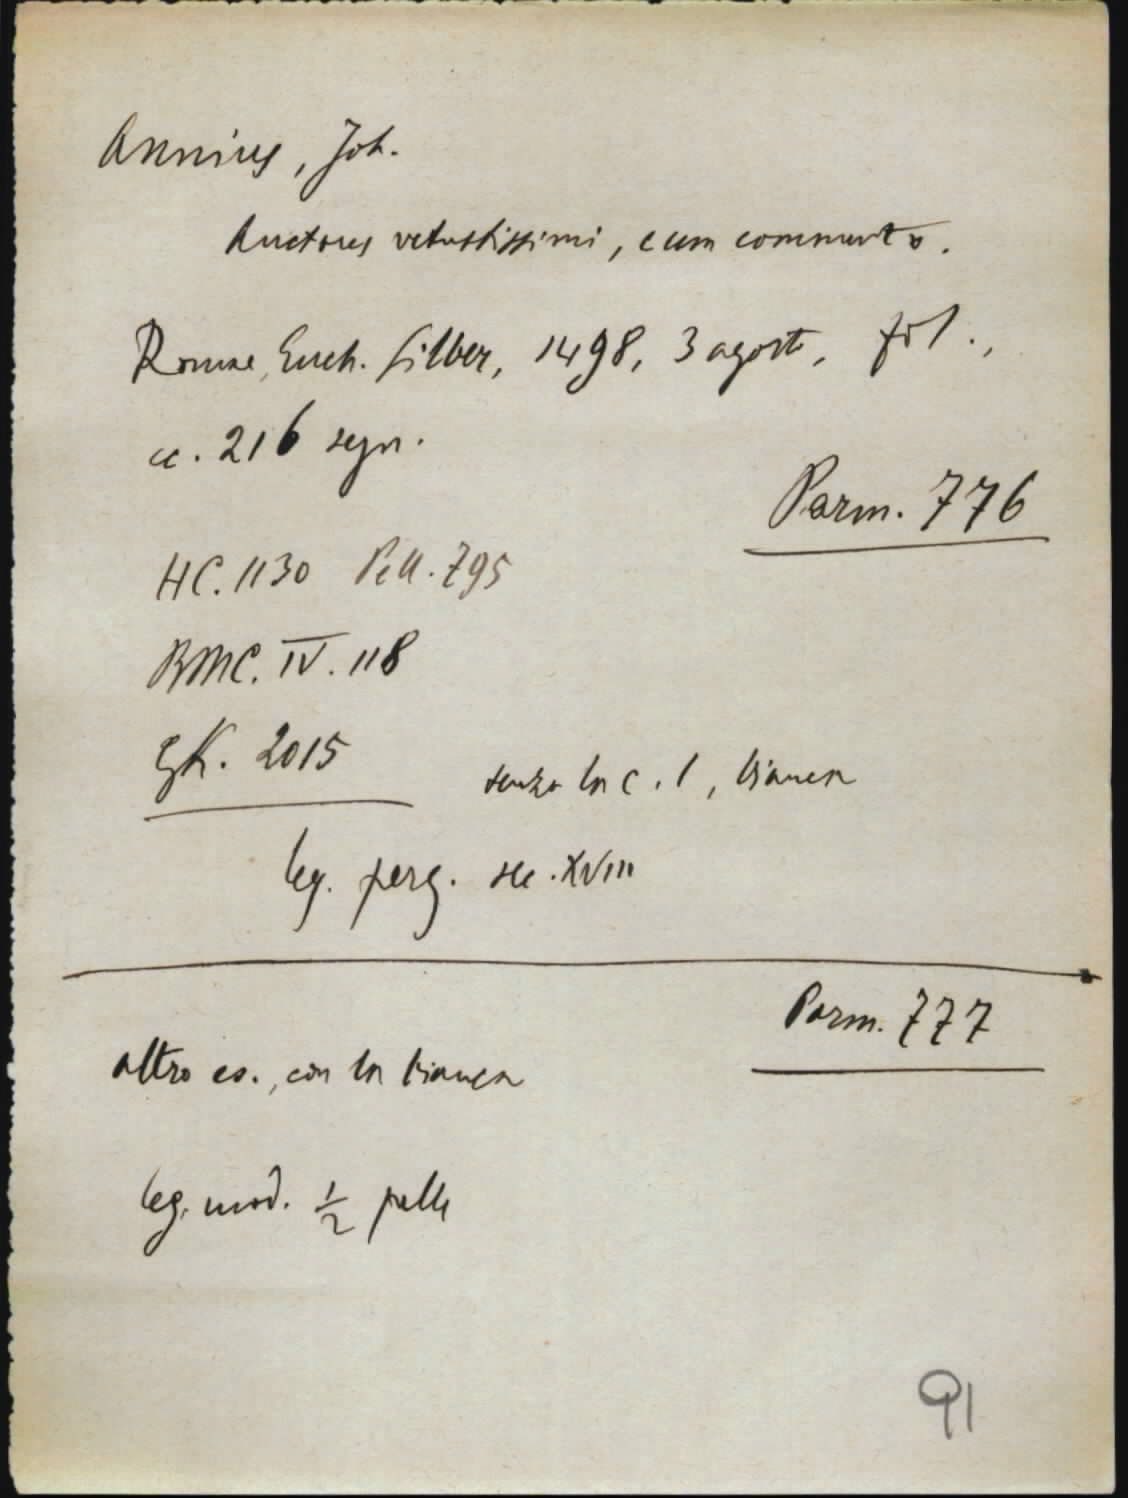 Annius, Joh.
Auctores vetustissimi, cum commento.
Romae, Euch. Silber, 1498, 3 agosto, fol.,
cc. 216 segn.
Parm. 776
HC. 1130 Pell. 795
BMC. IV. 118
GK. 2015
senza la c. 1, bianca
leg. perg. sec. XVIII
Parm. 777
altro es., con la bianca
leg. mod. 1/2 pelle
91